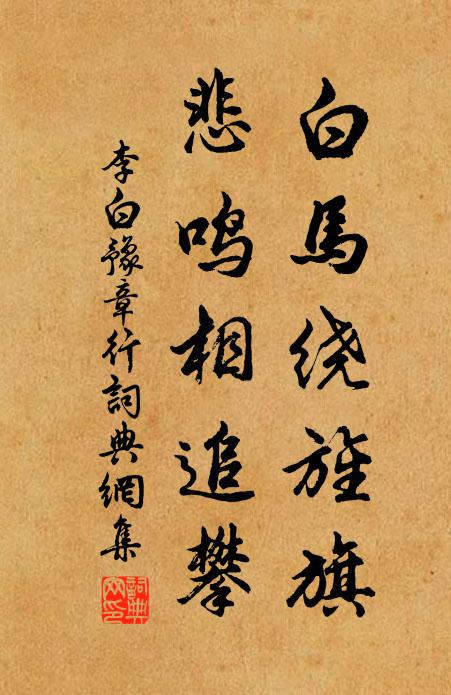 白馬绕旌旗
悲鸣相追攀
李白豫章行詞典網集
詞典
网印